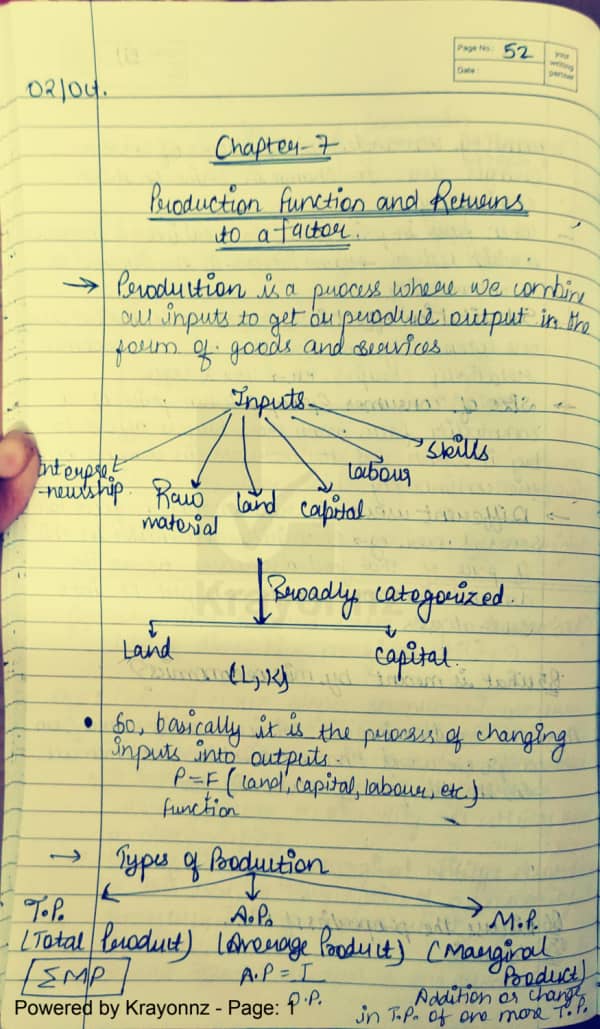 Page No: 52
Date:
your writing partner
02/04.
Chapter-7
Production function and Returns
to a factor.
→ Production is a process where we combine
all inputs to get or produce output in the
form of goods and services
Inputs
Enterpre
-neurship. Raw material Land Capital Labour Skills
Broadly categorized.
Land Capital.
(L, K)
• So, basically it is the process of changing
inputs into outputs.
P = F (Land, Capital, labour, etc.)
function
→ Types of Production
T.P. A.P. M.P.
(Total Product) (Average Product) (Marginal
Product)
ΣMP A.P = Addition or change
in T.P. of one more T.P.
Krayonnz
Powered by Krayonnz - Page: 1